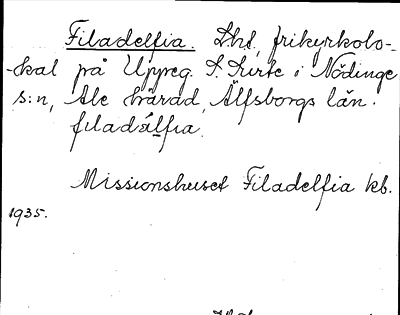 Filadelfia. L:het, frikyrkolo-
-kal på Uppreg. S. Surte i Nödinge
s:n, Ale härad, Älfsborgs län.
filadálfia.
Missionshuset Filadelfia kb.
1935.